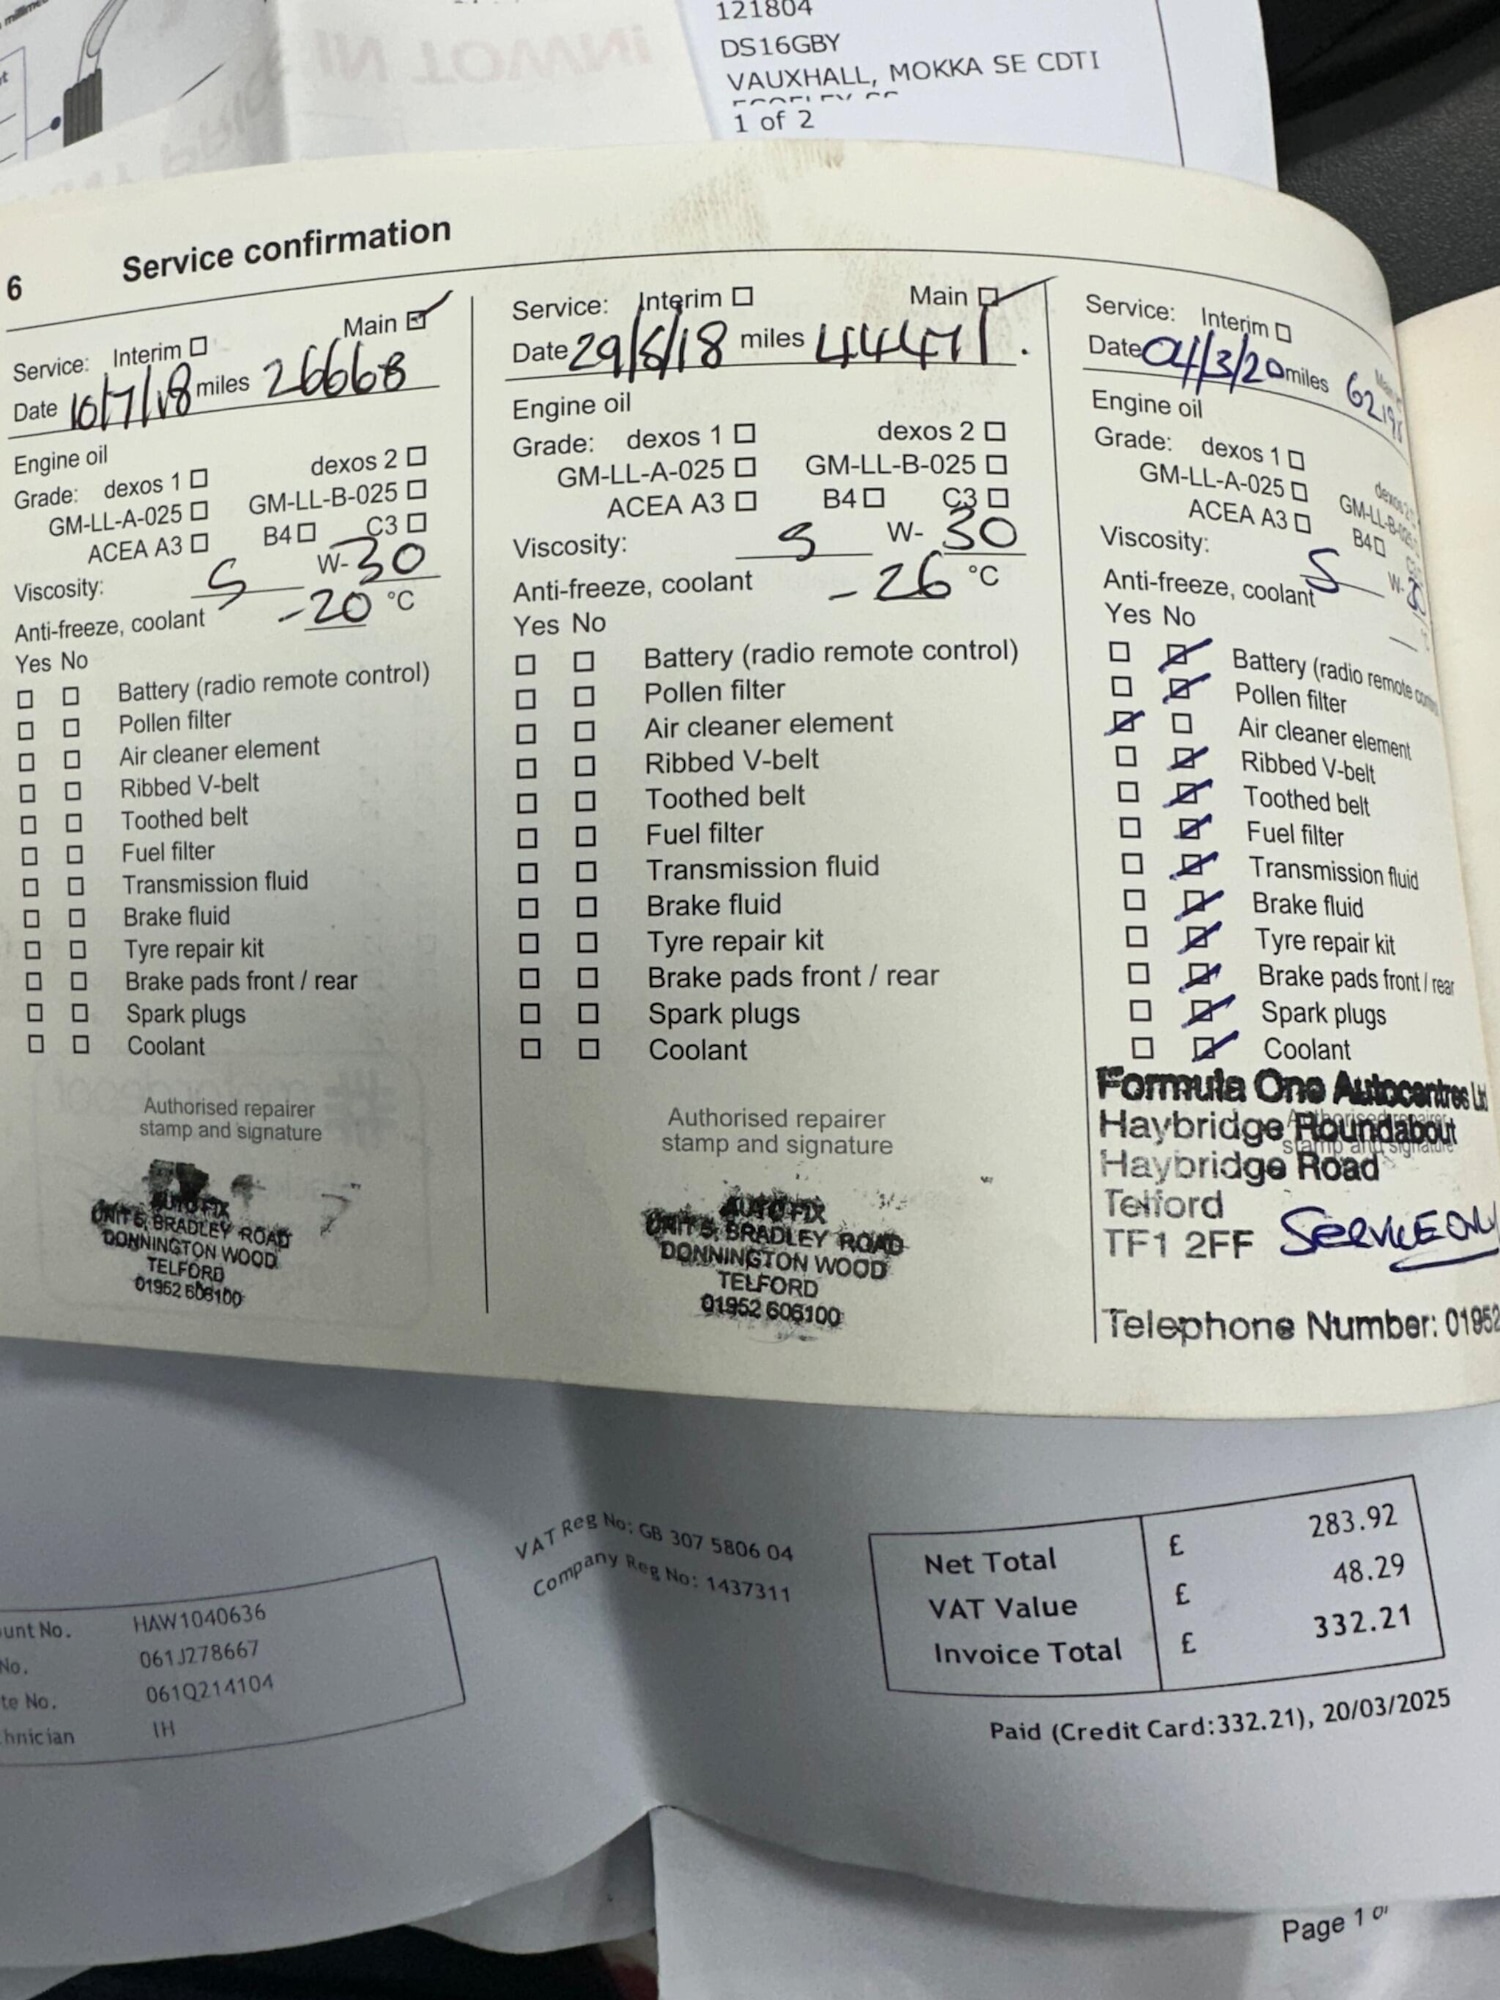 121804
DS16GBY
VAUXHALL, MOKKA SE CDTI
1 of 2
6 Service confirmation
Service: Interim Main
Date 10/7/18 miles 26668
Engine oil
Grade: dexos 1 dexos 2
GM-LL-A-025 GM-LL-B-025
ACEA A3 B4 C3
Viscosity: 5 W-30
Anti-freeze, coolant -20 °C
Yes No
Battery (radio remote control)
Pollen filter
Air cleaner element
Ribbed V-belt
Toothed belt
Fuel filter
Transmission fluid
Brake fluid
Tyre repair kit
Brake pads front / rear
Spark plugs
Coolant
Authorised repairer
stamp and signature
AUTO FIX
UNIT 5, BRADLEY ROAD
DONNINGTON WOOD
TELFORD
01952 606100
Service: Interim Main
Date 29/8/18 miles 44471.
Engine oil
Grade: dexos 1 dexos 2
GM-LL-A-025 GM-LL-B-025
ACEA A3 B4 C3
Viscosity: 5 W-30
Anti-freeze, coolant -26 °C
Yes No
Battery (radio remote control)
Pollen filter
Air cleaner element
Ribbed V-belt
Toothed belt
Fuel filter
Transmission fluid
Brake fluid
Tyre repair kit
Brake pads front / rear
Spark plugs
Coolant
Authorised repairer
stamp and signature
AUTO FIX
UNIT 5, BRADLEY ROAD
DONNINGTON WOOD
TELFORD
01952 606100
Service: Interim
Date 04/3/20 miles 62196
Engine oil
Grade: dexos 1 dexos 2
GM-LL-A-025 GM-LL-B-025
ACEA A3 B4
Viscosity: 5 W-30
Anti-freeze, coolant
Yes No
Battery (radio remote control)
Pollen filter
Air cleaner element
Ribbed V-belt
Toothed belt
Fuel filter
Transmission fluid
Brake fluid
Tyre repair kit
Brake pads front / rear
Spark plugs
Coolant
Authorised repairer
stamp and signature
Formula One Autocentres Ltd
Haybridge Roundabout
Haybridge Road
Telford
TF1 2FF SERVICE
Telephone Number: 01952
VAT Reg No: GB 307 5806 04
Company Reg No: 1437311
unt No. HAW1040636
No. 061J278667
te No. 061Q214104
hnician IH
Net Total £ 283.92
VAT Value £ 48.29
Invoice Total £ 332.21
Paid (Credit Card:332.21), 20/03/2025
Page 1